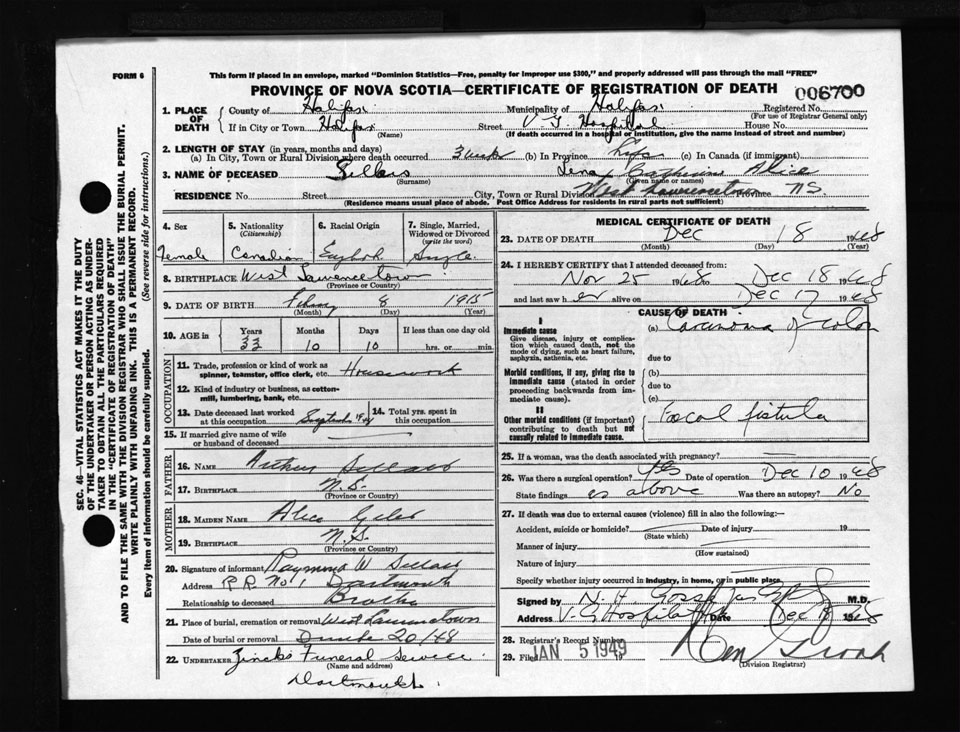 FORM 6
This form if placed in an envelope, marked "Dominion Statistics—Free, penalty for improper use $300," and properly addressed will pass through the mail "FREE"
PROVINCE OF NOVA SCOTIA—CERTIFICATE OF REGISTRATION OF DEATH
006700
1. PLACE OF DEATH
County of Halifax Municipality of Halifax Registered No.
(For use of Registrar General only)
If in City or Town Halifax Street V G Hospital House No.
(Name) (If death occurred in a hospital or institution, give the name instead of street and number)
2. LENGTH OF STAY (in years, months and days)
(a) In City, Town or Rural Division where death occurred 3 wks (b) In Province Life (c) In Canada (if immigrant)
3. NAME OF DECEASED Sellars Lena Catherine Alice
(Surname) (Given name or names)
RESIDENCE No. Street City, Town or Rural Division West Lawrencetown Province NS.
(Residence means usual place of abode. Post Office Address for residents in rural parts not sufficient)
4. Sex Female
5. Nationality (Citizenship) Canadian
6. Racial Origin English
7. Single, Married, Widowed or Divorced (write the word) Single
8. BIRTHPLACE West Lawrencetown
(Province or Country)
9. DATE OF BIRTH 8 1915
(Month) (Day) (Year)
10. AGE in Years 33 Months 10 Days 10 If less than one day old hrs. or min.
OCCUPATION
11. Trade, profession or kind of work as spinner, teamster, office clerk, etc. Housework
12. Kind of industry or business, as cotton-mill, lumbering, bank, etc.
13. Date deceased last worked at this occupation
14. Total yrs. spent in this occupation
15. If married give name of wife or husband of deceased
FATHER
16. NAME Arthur Sellars
17. BIRTHPLACE N.S.
(Province or Country)
MOTHER
18. MAIDEN NAME Alice Giles
19. BIRTHPLACE N.S.
(Province or Country)
20. Signature of informant Raymond W Sellars
Address R.R. No 1 Dartmouth
Relationship to deceased Brother
21. Place of burial, cremation or removal West Lawrencetown
Date of burial or removal 20/48
22. UNDERTAKER Zinck's Funeral Service
(Name and address)
Dartmouth
MEDICAL CERTIFICATE OF DEATH
23. DATE OF DEATH Dec 18 1948
(Month) (Day) (Year)
24. I HEREBY CERTIFY that I attended deceased from:
Nov 25 1948 Dec 18 1948
and last saw her alive on Dec 17 1948
CAUSE OF DEATH
I
Immediate cause
Give disease, injury or complication which caused death, not the mode of dying, such as heart failure, asphyxia, asthenia, etc.
(a) Carcinoma of Colon
due to
Morbid conditions, if any, giving rise to immediate cause (stated in order proceeding backwards from immediate cause).
(b)
due to
(c)
II
Other morbid conditions (if important) contributing to death but not causally related to immediate cause.
Faecal fistula
25. If a woman, was the death associated with pregnancy?
26. Was there a surgical operation? Yes Date of operation Dec 10 1948
State findings as above Was there an autopsy? No
27. If death was due to external causes (violence) fill in also the following:—
Accident, suicide or homicide? Date of injury 19
(State which)
Manner of injury
(How sustained)
Nature of injury
Specify whether injury occurred in industry, in home, or in public place.
Signed by N. H. Gosse M.D.
Address V. G Hospital Date Dec 1948
28. Registrar's Record Number
29. Filed JAN 5 1949 19
(Division Registrar)
SEC. 46—VITAL STATISTICS ACT MAKES IT THE DUTY
OF THE UNDERTAKER OR PERSON ACTING AS UNDERTAKER
TO OBTAIN ALL THE PARTICULARS REQUIRED
IN THE "CERTIFICATE OF REGISTRATION OF DEATH"
AND TO FILE THE SAME WITH THE DIVISION REGISTRAR WHO SHALL ISSUE THE BURIAL PERMIT.
WRITE PLAINLY WITH UNFADING INK. THIS IS A PERMANENT RECORD.
Every item of information should be carefully supplied. (See reverse side for instructions.)